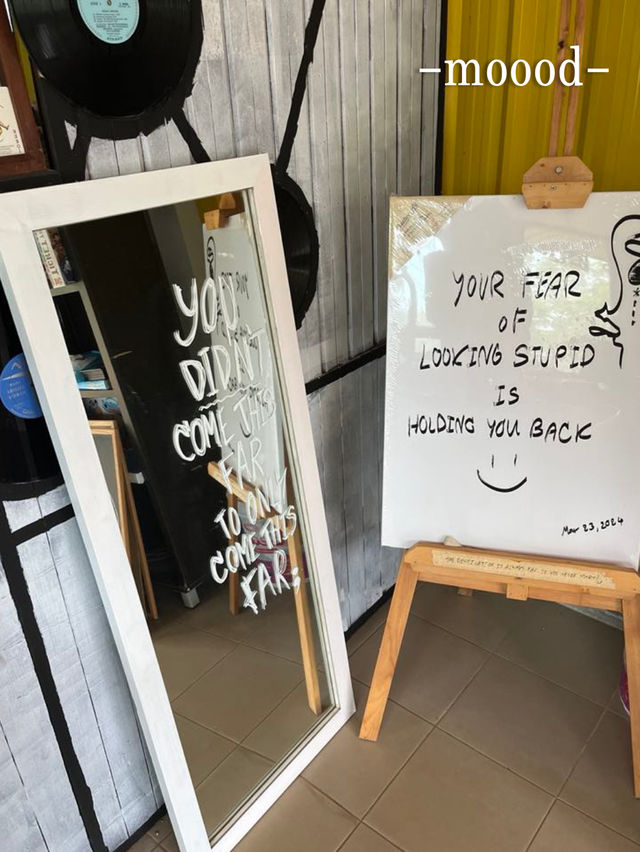 -moood-
YOU
DIDN'T
COME THIS
FAR
TO ONLY
COME THIS
FAR.
YOUR FEAR
OF
LOOKING STUPID
IS
HOLDING YOU BACK
Mar 23, 2024